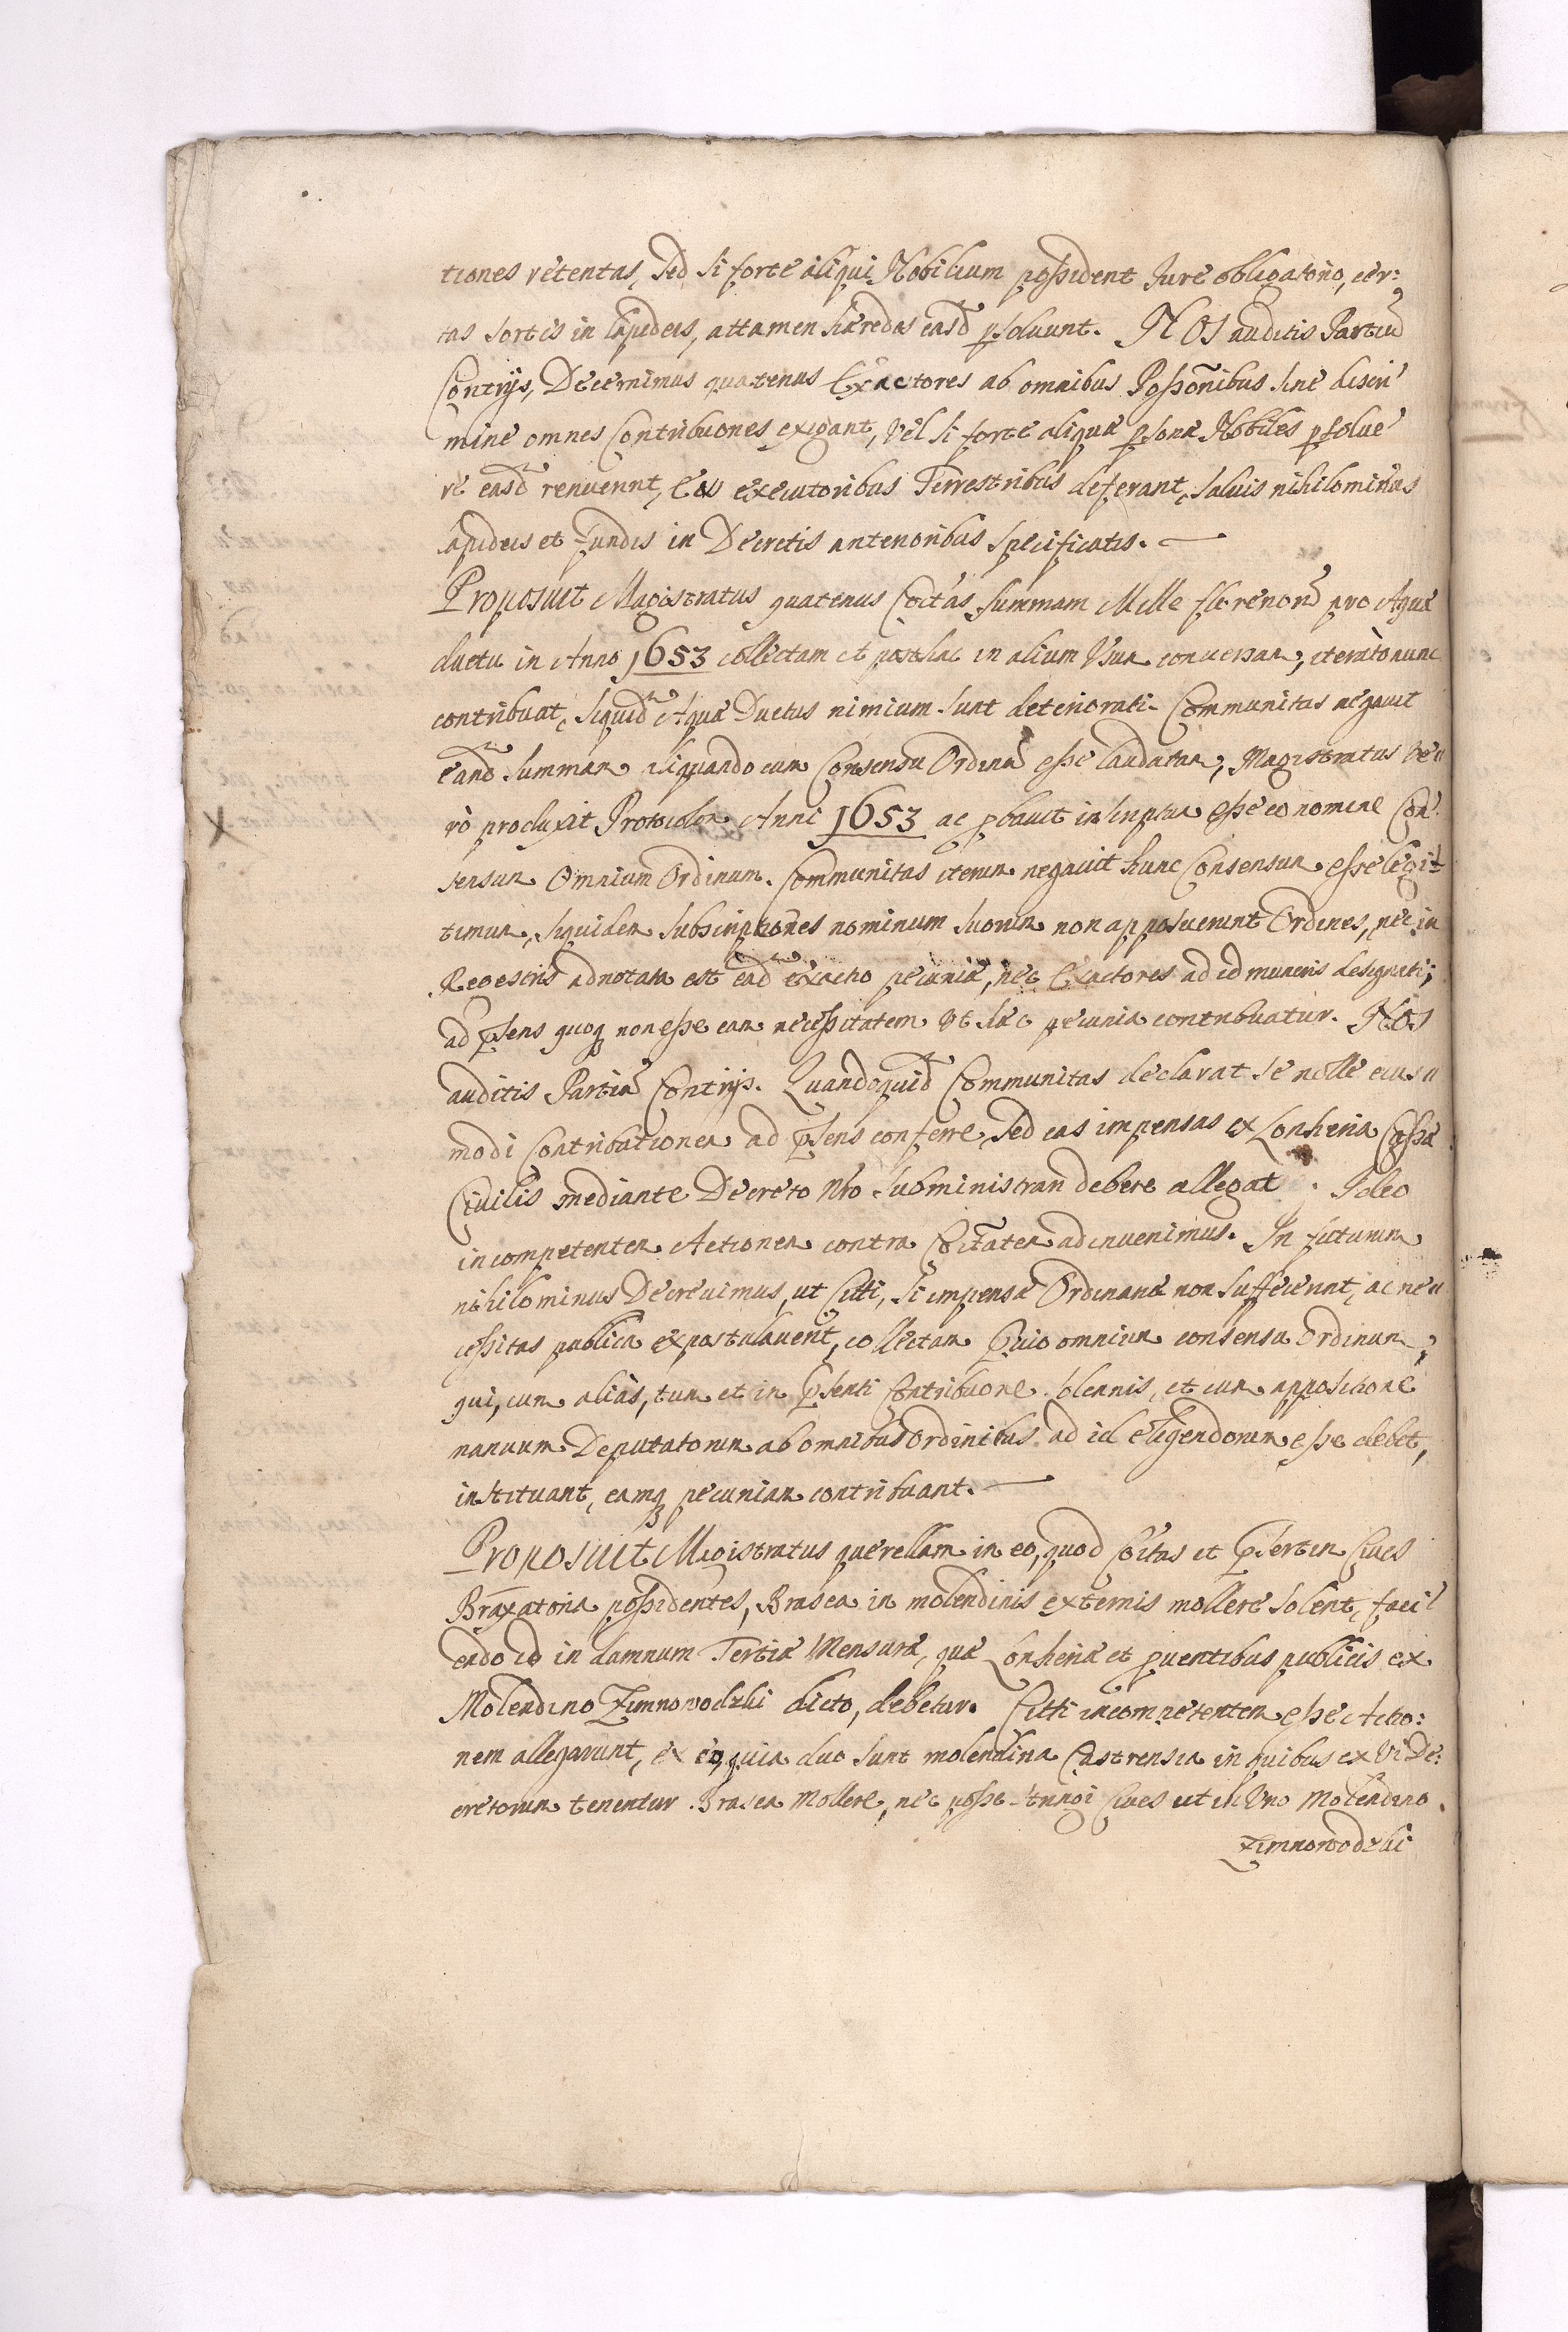 tiones retentas, Sed si forte aliqui Nobilium possident Jure obligatorio, cer:
tas sortes in lapideis, attamen haeredes easd psoluunt. NOS auditis Partiu
Contrijs, Decernimus quatenus Exactores ab omnibus Possonibus sine discri
mine omnes Contribuones exigant, Vel si forte aliquae psonae Nobiles psolue
re easd renuerint, Eas executoribus Terrestribus deferant, saluis nihilominus
lapideis et fundis in Decretis anterioribus specificatis.
Proposuit Magistratus quatenus Coitas summam Mille florenor pro Aquae
ductu in Anno 1653 collectam et posthac in alium Usum conuersam, iterato nunc
contribuat, siquid Aquae Ductus nimium sunt deteriorati. Communitas negauit
eand summam aliquando cum Consensu Ordinu esse laudatam, Magistratus ve
ro produxit Protocolon Anni 1653 ac pbauit inscriptum esse eo nomine Con
sensum Omnium Ordinum. Communitas iterum negauit hunc Consensum esse legit
timum, siquidem subscriptiones nominum suorum non apposuerunt Ordines, nec in
Regestris adnotata est ead exactio pecuniae, nec Exactores ad id muneris designati;
ad psens quoq non esse eam necessitatem Vt haec pecunia contribuatur. NOS
auditis Partiu Contrijs. Quandoquid Communitas declarat se nolle eius
modi Contributionem ad psens conferre, sed eas impensas ex Lonheria Cassae
Ciuilis mediante Decreto Nro subministrari debere allegat. Ideo
incompetentem Actionem contra Coitatem adinuenimus. In futurum
nihilominus Decreuimus, ut Citti, si impensae Ordinariae non suffecerint, ac ne
cessitas publica expostulauerit, collectam pvio omnium consensu Ordinum,
qui, cum alias, tum et in psenti Contribuone solennis, et cum appositione
manuum Deputatorum ab omnibus Ordinibus ad id eligendorum esse debet,
instituant, eamq pecuniam contribuant.
Proposuit Magistratus querellam in eo, quod Coitas et psertim Ciues
Braxatoria possidentes, Brasea in molendinis externis mollere solent, faci
endo id in damnum Tertiae Mensurae, quae Lonheriae et puentibus publicis ex
Molendino Zimnowodzki dicto, debetur. Citti incompetentem esse Actio:
nem allegarunt, ex eo, quia duo sunt molendina Castrensia in quibus ex Vi De:
cretorum tenentur Brasea Mollere, nec posse stringi Ciues ut in Vno Molendino
Zimnowodzki